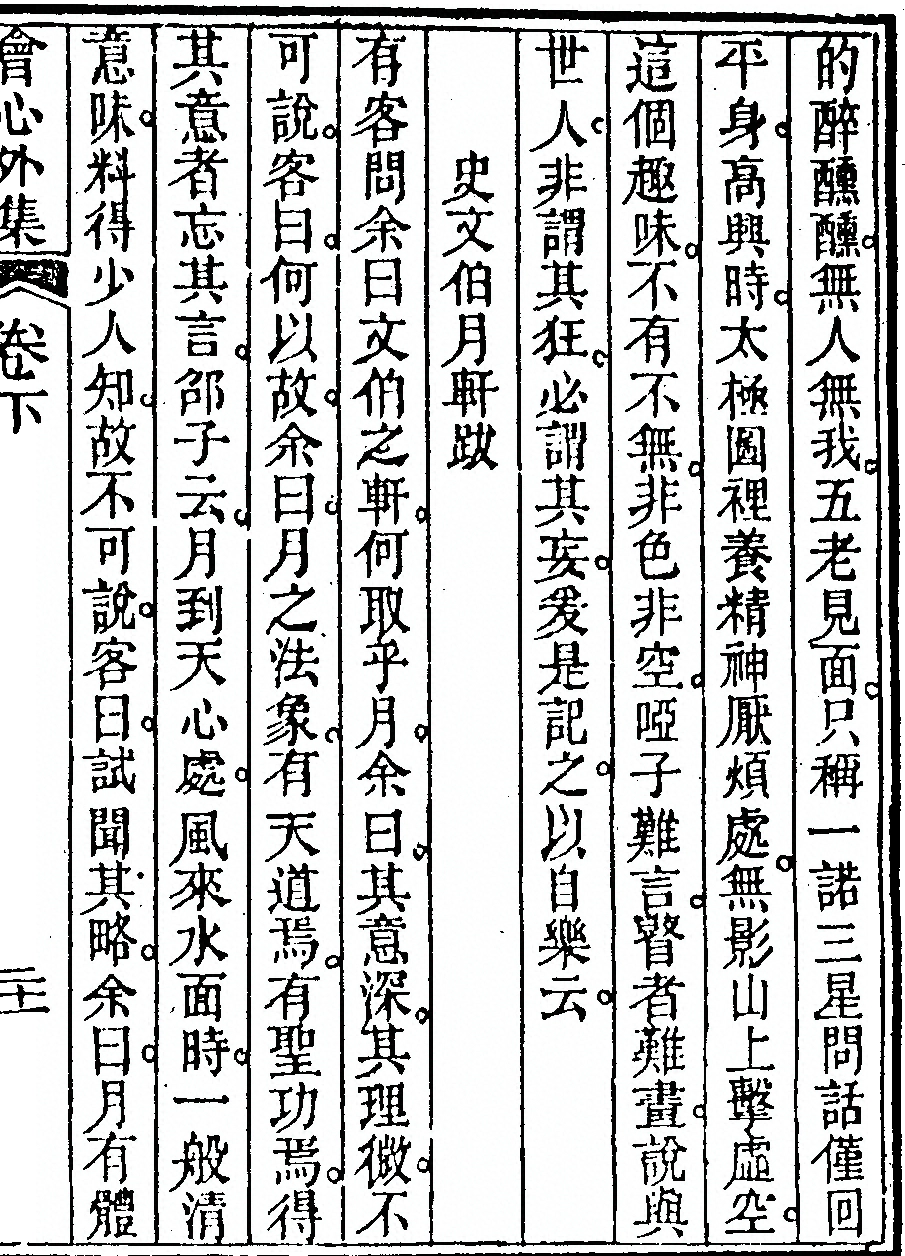 的醉醺醺無人無我五老見面只稱一諾三星問話僅回
平身高興時太極圈裡養精神厭煩處無影山上擊虛空
這個趣味不有不無非色非空啞子難言瞽者難畫說與
世人非謂其狂必謂其妄爰是記之以自樂云
史文伯月軒跋
有客問余曰文伯之軒何取乎月余曰其意深其理微不
可說客曰何以故余曰月之法象有天道焉有聖功焉得
其意者忘其言邵子云月到天心處風來水面時一般清
意味料得少人知故不可說客曰試聞其略余曰月有體
會心外集
卷下
二十